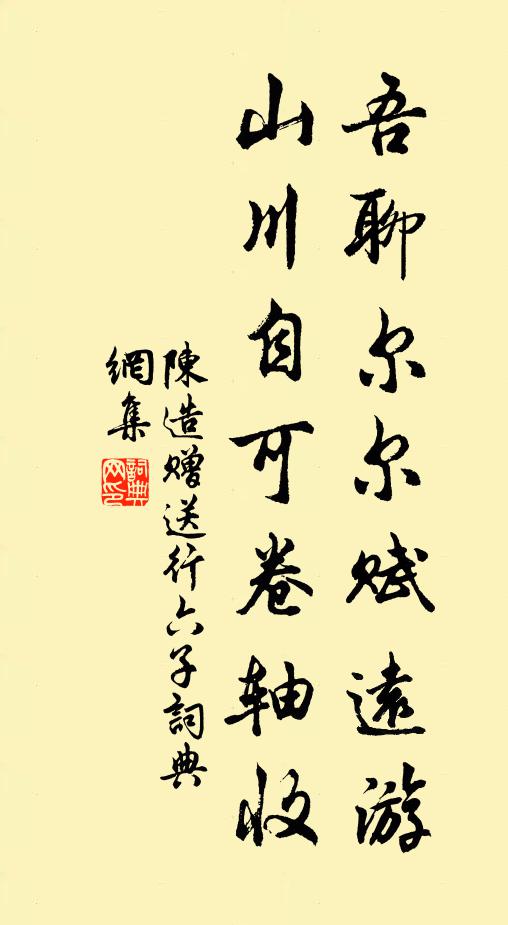 吾聊尔尔赋遠游
山川自可卷轴收
陳造赠送行六子詞典
網集
詞典
网印